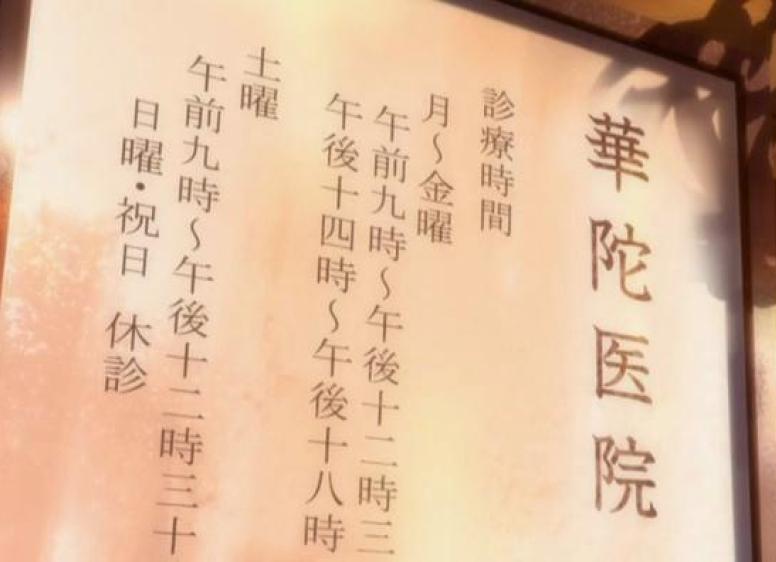 華陀医院
診療時間
月～金曜
午前九時～午後十二時三
午後十四時～午後十八時
土曜
午前九時～午後十二時三十
日曜・祝日 休診